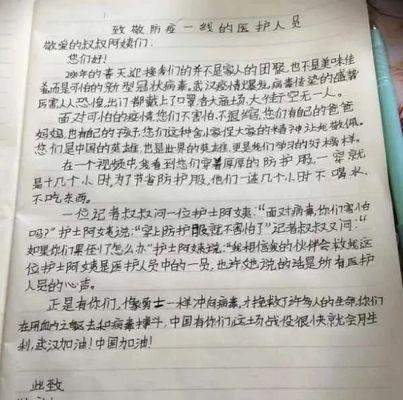 致敬防疫一线的医护人员
敬爱的叔叔阿姨们:
您们好!
2020年的春天迎接我们的并不是家人的团聚,也不是美味佳
肴而是可怕的新型冠状病毒。武汉疫情爆发,病毒传染的感势
厉害人人恐惶,出门都戴上了口罩,各大商场、大街空无一人。
面对可怕的疫情,您们不害怕,不退缩,您们有自己的爸爸
妈妈,也有自己的孩子,您们这种舍小家保大家的精神让我敬佩。
您们是中国的英雄,也是世界的英雄,更是我们学习的好榜样。
在一个视频中,我看到您们穿着厚厚的防护服,一穿就
是十几个小时,为了节省防护服,他们一连几个小时不喝水、
不吃东西。
一位记者叔叔问一位护士阿姨:“面对病毒,你们害怕
吗?”护士阿姨说:“穿上防护服就不害怕了”记者叔叔又问:“
如果你们累倒了怎么办”护士阿姨说:“我相信我的伙伴会救我这
位护士阿姨是医护人员中的一员,也许她说的话是所有医护
人员的心声。
正是有你们,像勇士一样冲向病毒,才挽救了许多人的生命,你们
在用血肉之躯去和病毒搏斗,中国有你们这场战役很快就会月生
利,武汉加油!中国加油!
此致